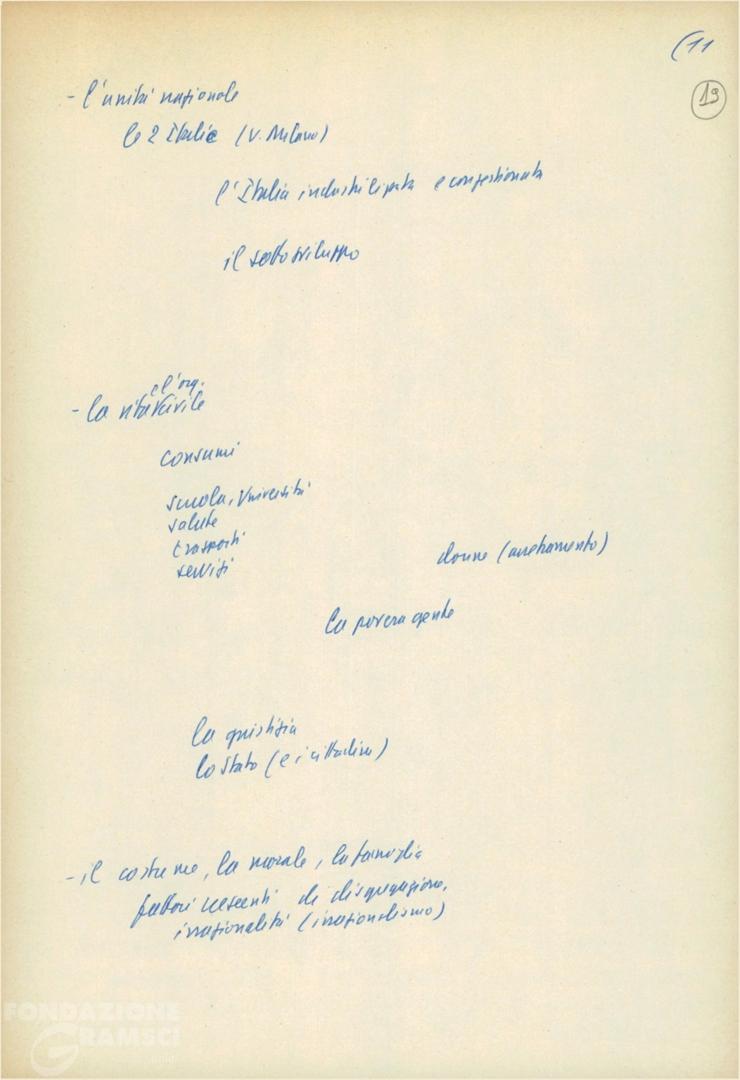 (11
19
- l'unità nazionale
le 2 Italie (v. Milano)
l'Italia industrilizzata e congestionata
il sottosviluppo
e l'org.
- la vita civile
consumi
scuola, Università
salute
trasporti
servizi
donne (arretramento)
la povera gente
la giustizia
lo Stato (e i cittadini)
- il costume, la morale, la famiglia
fattori crescenti di disgregazione,
irrazionalità (irrazionalismo)
FONDAZIONE
GRAMSCI